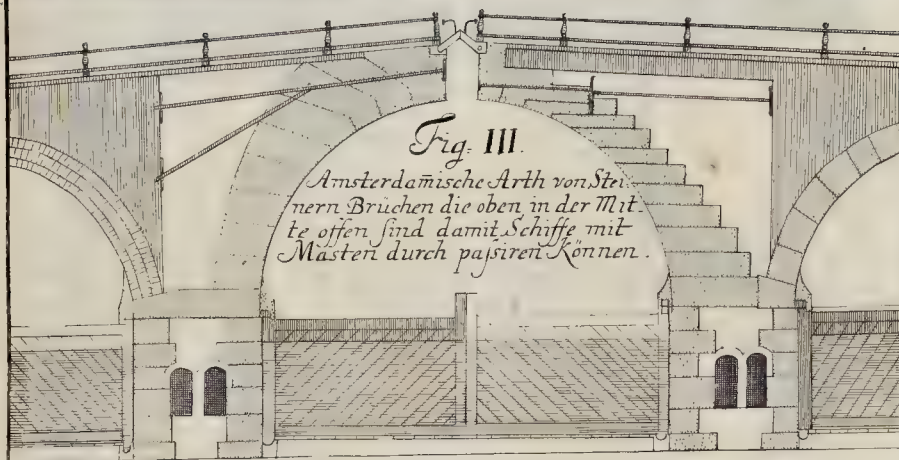 Fig. III.
Amsterdam̃ische Arth von Stei-
nern Brüchen die oben in der Mit-
te offen sind damit Schiffe mit
Masten durch paſsiren Können.